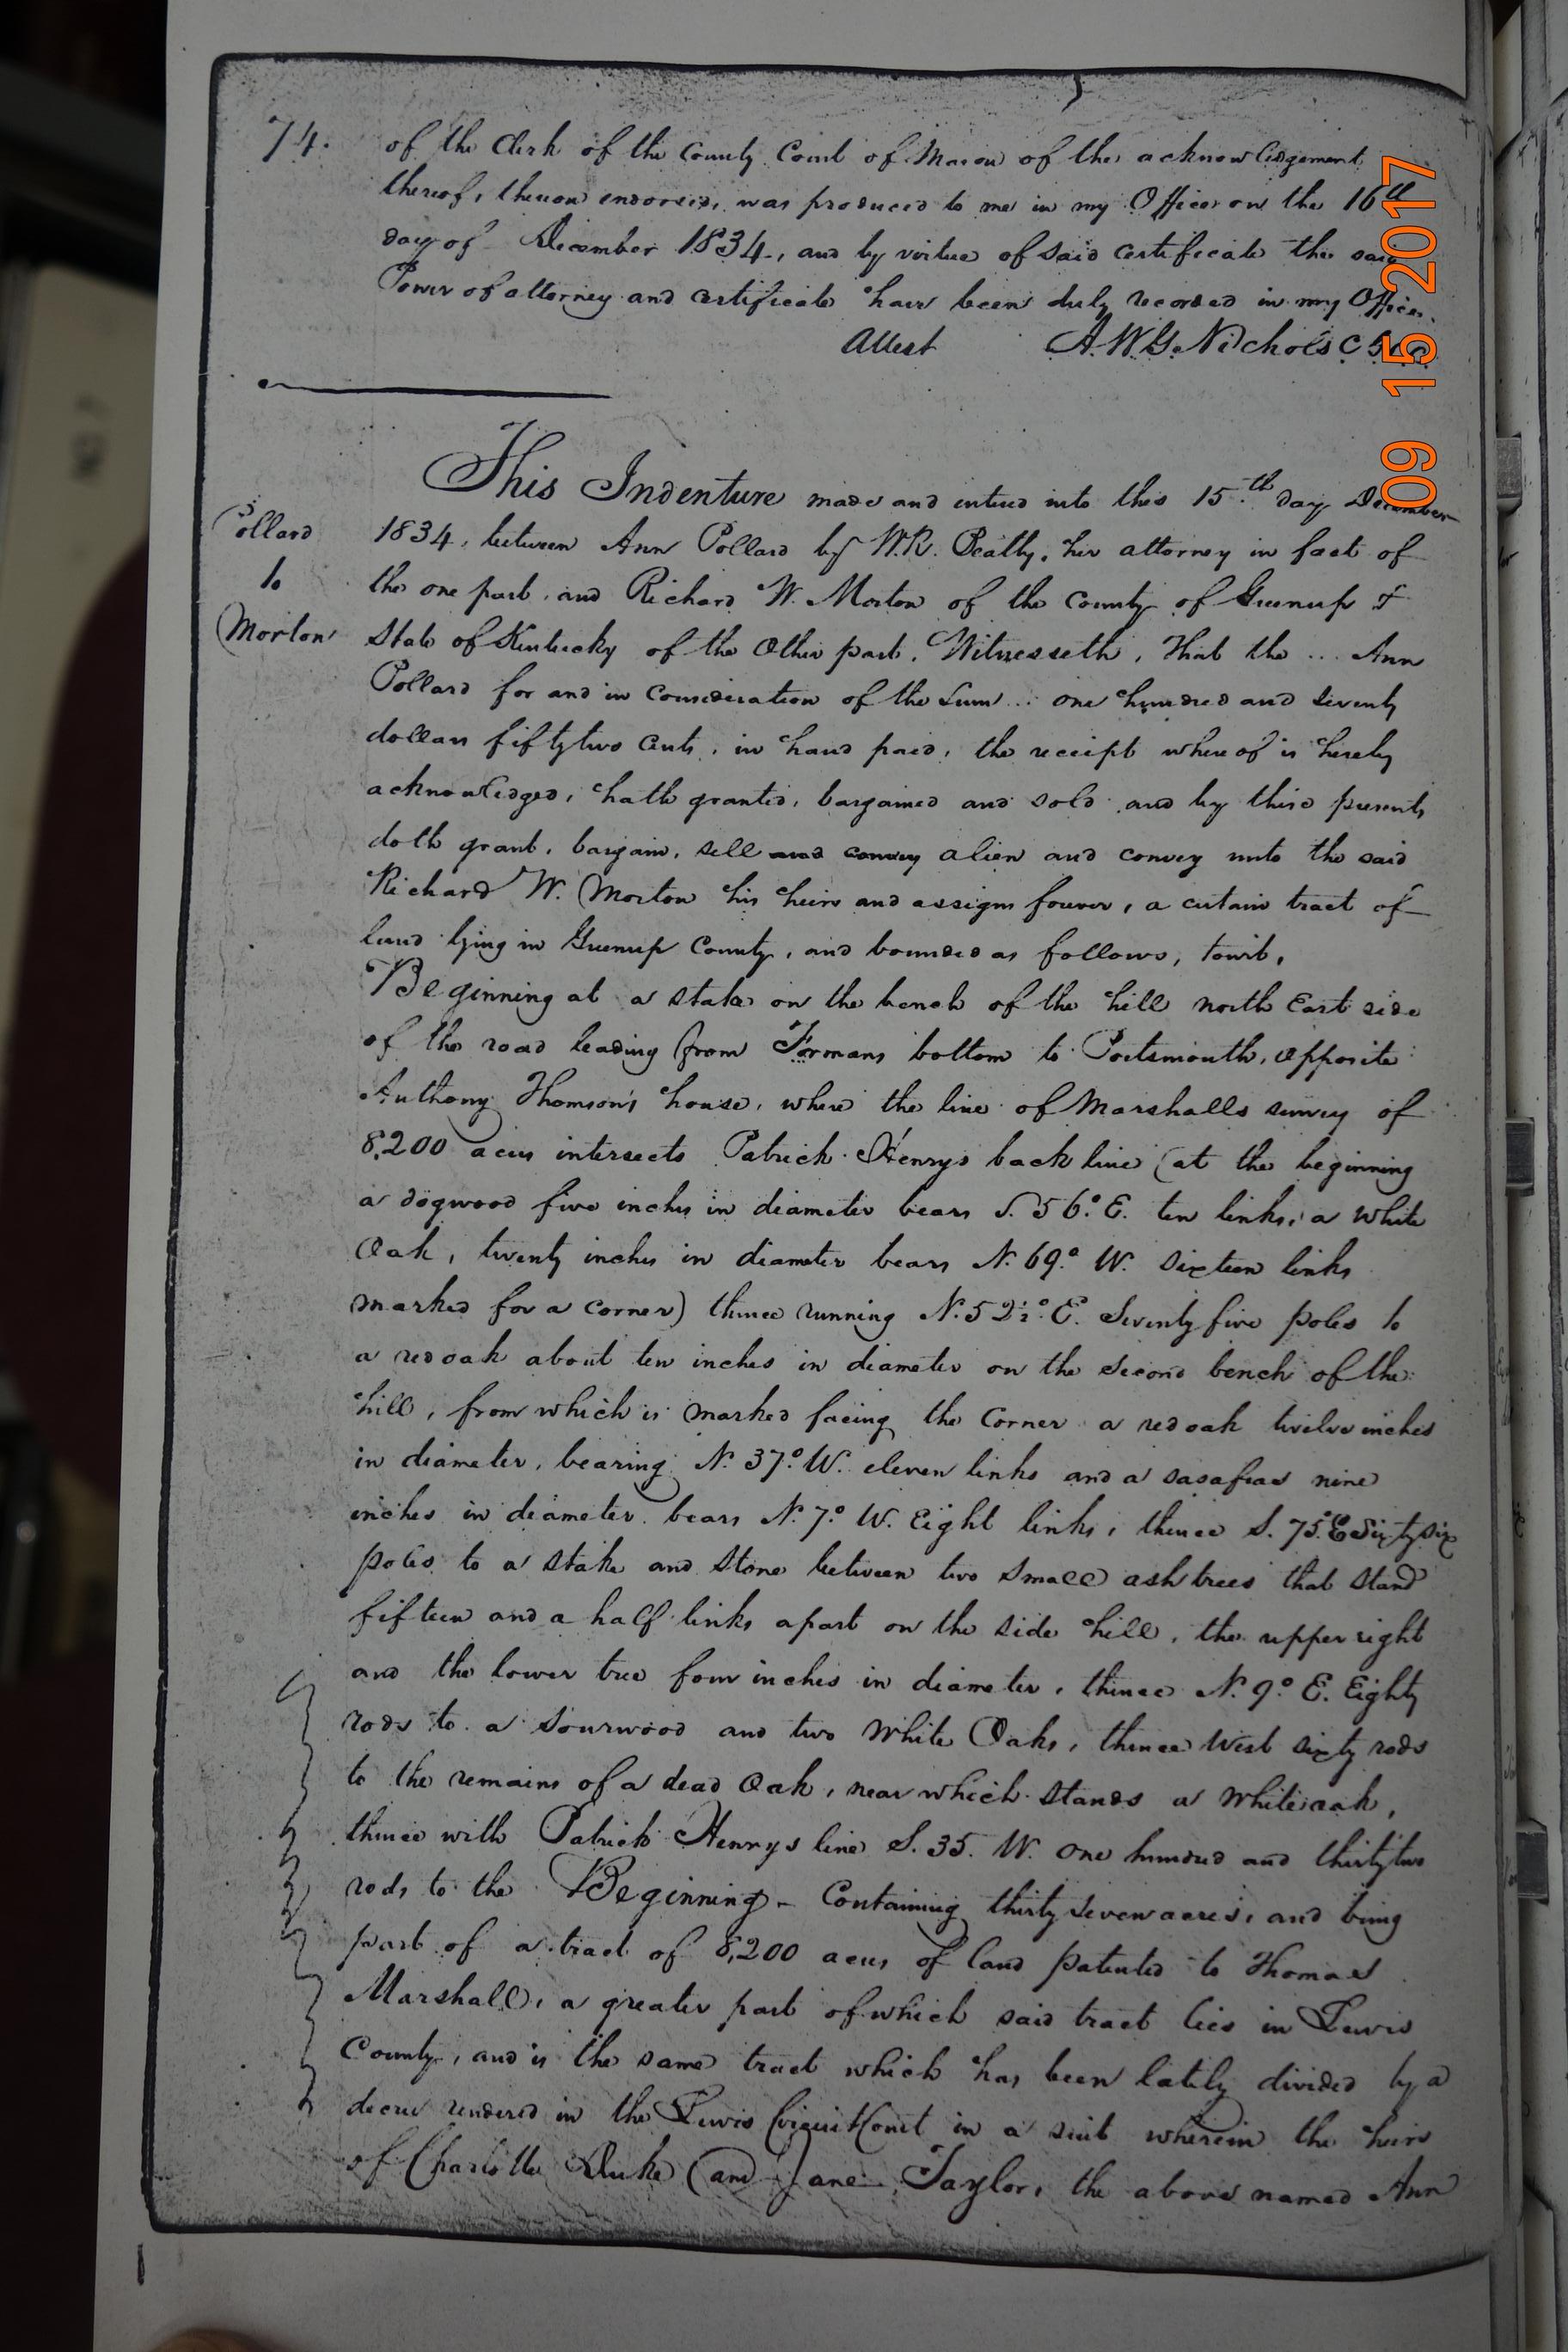 74.
of the Clerk of the County Court of Mason of the acknowledgement
thereof, thereon endorsed, was produced to me in my Office on the 16th
day of December 1834, and by virtue of said certificate the said
Power of attorney and certificate have been duly recorded in my Office.
Attest A. W. G. Nichols C
09 15 2017
This Indenture made and entered into this 15th day December
Pollard
to
Morton
1834, between Ann Pollard by W. R. Beatty, her attorney in fact of
the one part, and Richard W. Morton of the County of Greenup &
State of Kentucky of the Other part, Witnesseth, That the ... Ann
Pollard for and in Consideration of the Sum ... one hundred and Seventy
dollars fiftytwo Cents, in hand paid, the receipt where of is hereby
acknowledged, hath granted, bargained and sold and by these presents
doth grant, bargain, sell and convey alien and convey unto the said
Richard W. Morton his heirs and assigns forever, a certain tract of
land lying in Greenup County, and bounded as follows, towit,
Beginning at a stake on the bench of the hill north East side
of the road leading from Formans bottom to Portsmouth, opposite
Anthony Thomson's house, where the line of Marshalls survey of
8,200 acres intersects Patrick Henrys back line (at the beginning
a dogwood five inches in diameter bears S. 56.° E. ten links, a White
Oak, twenty inches in diameter bears N. 69.° W. sixteen links
marked for a corner) thence running N. 52½.° E. Seventy five poles to
a red oak about ten inches in diameter on the Second bench of the
hill, from which is marked facing the Corner a red oak twelve inches
in diameter, bearing N. 37.° W. eleven links and a sasafras nine
inches in diameter bears N. 7.° W. Eight links, thence S. 75.° E Sixty six
poles to a stake and Stone between two Small ash trees that Stand
fifteen and a half links apart on the side hill, the upper eight
and the lower tree four inches in diameter, thence N. 9.° E. Eighty
rods to a Sourwood and two White Oaks, thence West sixty rods
to the remains of a dead Oak, near which stands a White oak,
thence with Patrick Henrys line S. 35. W. One hundred and thirtytwo
rods to the Beginning - Containing thirty seven acres, and being
part of a tract of 8,200 acres of land patented to Thomas
Marshall, a greater part of which said tract lies in Lewis
County, and is the same tract which has been lately divided by a
decree rendered in the Lewis Circuit Court in a suit wherein the heirs
of Charlotte Duke and Jane Taylor, the above named Ann